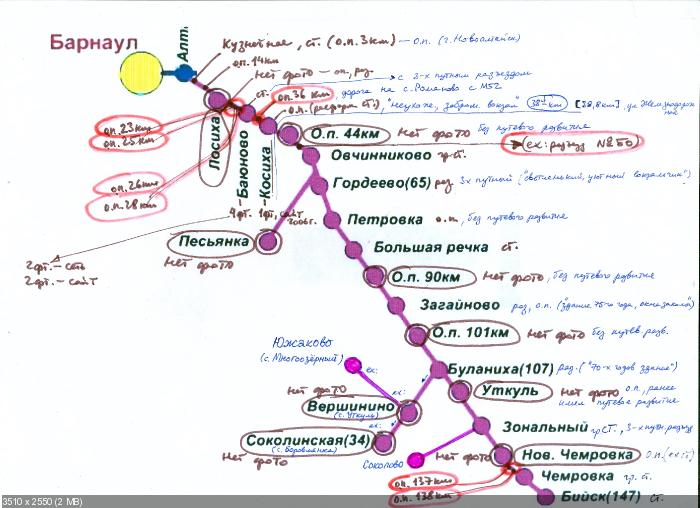 Барнаул
Алт.
Кузнечное, ст. (о.п. 3км) — о.п. (г. Новоалтайск)
оп. 14км
нет фото — оп, раз.
с 3-х путным разъездом
ст.
оп. 36 км
дорога на с. Романово с М52
о.п.
"неухоже, заброш. вокзал"
[38,8км]
оп. 23км
оп. 25км
Лосиха
Баюново
Косиха
О.п. 44км
Нет фото
без путевого развития
(ex: разъезд №50)
Овчинниково
гр. ст.
оп. 26км
оп. 28км
Гордеево(65)
раз. 3х путный
4фт.
1фт, сайт
2006г.
Петровка
о.п., без путевого развития
Песьянка
нет фото
Большая речка
ст.
2фт. — сеть
2фт. — сайт
О.п. 90км
Нет фото, без путевого развития
Загайново
раз, о.п. ("здание 75-го года,
О.п. 101км
Нет фото
без путев. разв.
Южаково
(с. Многоозёрный)
ex:
Буланиха(107)
раз. ("70-х годов здание")
нет фото
ex:
Вершинино
(с. Уткуль)
Уткуль
Нет фото
о.п., ранее
имел путевое развитие
ex:
Соколинская(34)
(с. Боровлянка)
Нет фото
Зональный
гр СТ., 3-х путн. разъезд
Соколово
Нет фото
Нов. Чемровка
О.п. (ex: ст)
оп. 137км
оп. 138км
Чемровка
гр. ст.
Бийск(147)
ст.
3510 x 2550 (2 MB)